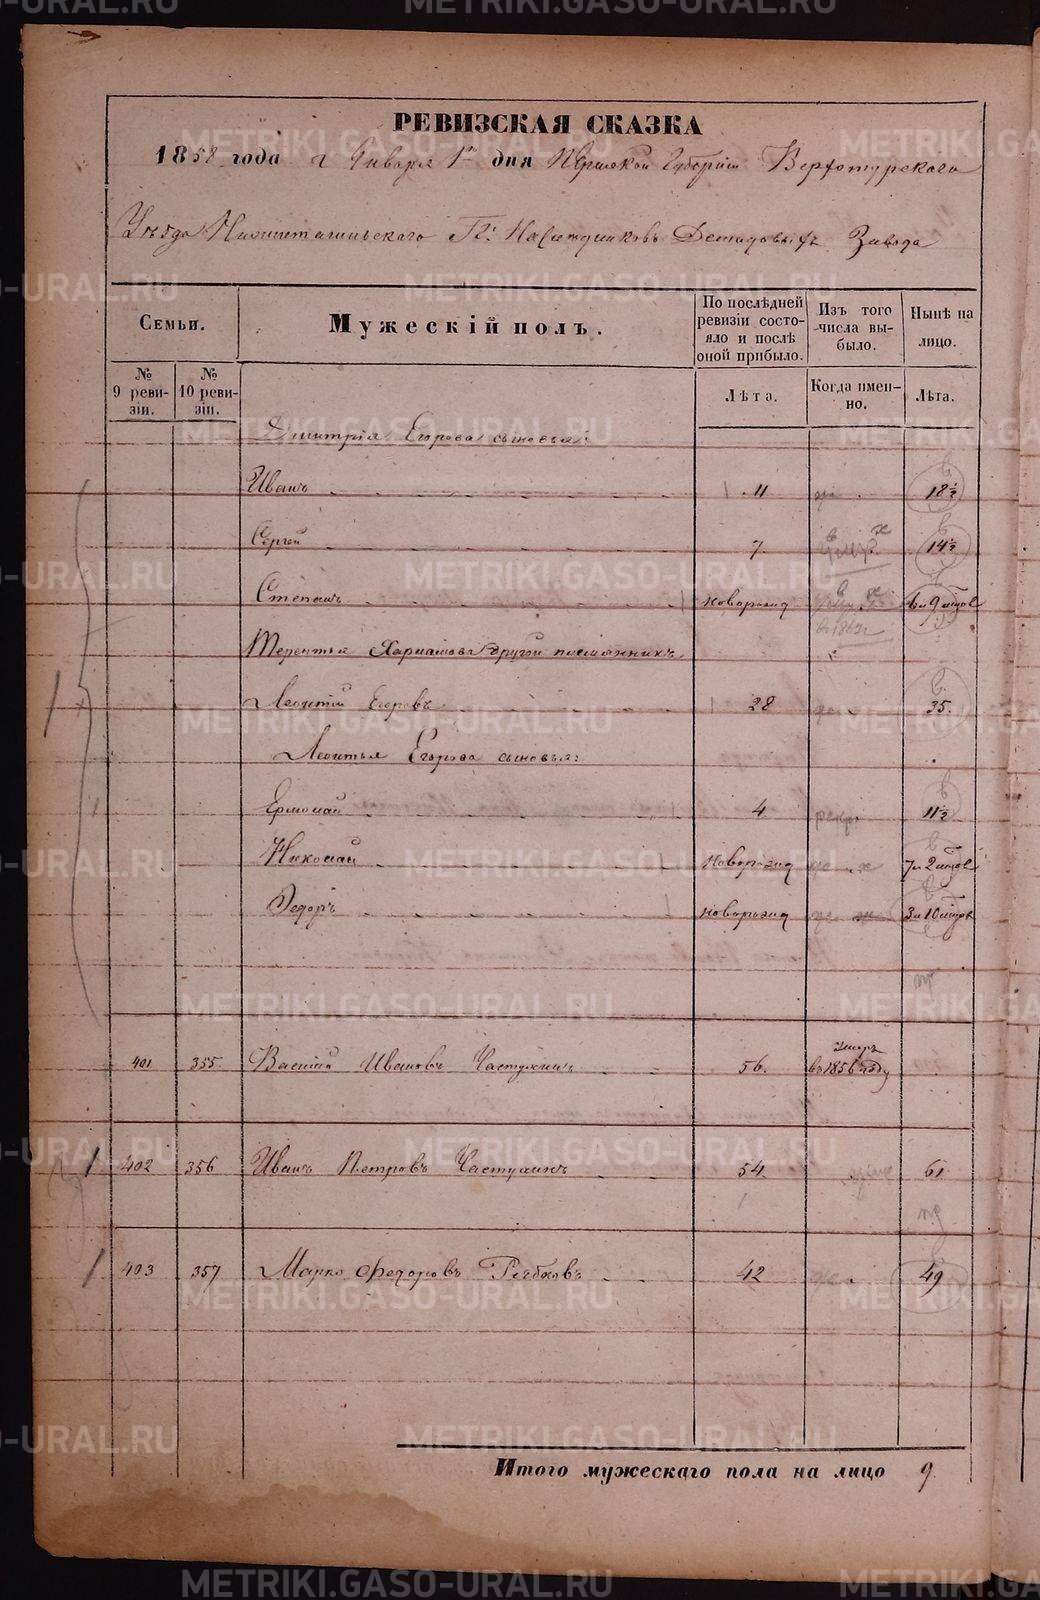 РЕВИЗСКАЯ СКАЗКА
1858 года Января 1го дня Пермской Губернiи Верхотурскаго
Уѣзда Нижнетагильскаго Гг. Наслѣдниковъ Демидовыхъ Завода
Семьи.
Мужескій полъ.
По послѣдней ревизіи состояло и послѣ оной прибыло.
Изъ того числа выбыло.
Нынѣ на лицо.
№ 9 ревизіи.
№ 10 ревизіи.
Лѣта.
Когда именно.
Лѣта.
Дмитрія Егорова сыновья:
Иванъ 11 18½
Сергей 7 умер 14½
Степанъ новорожд 9 мцов
Терентья другой племянникъ
Леонтій Егоровъ 28 35.
Леонтья Егорова сыновья:
Ермолай 4 11½
Николай новорожд 7 л 2 мцов
Федоръ новорожд 3 л 10 мцов
401 355 Василій Ивановъ Частухинъ 56. умеръ въ 1856 году
402 356 Иванъ Петровъ Частухинъ 54 61
403 357 Марко Федоровъ 42 49
Итого мужескаго пола на лицо 9.
METRIKI.GASO-URAL.RU